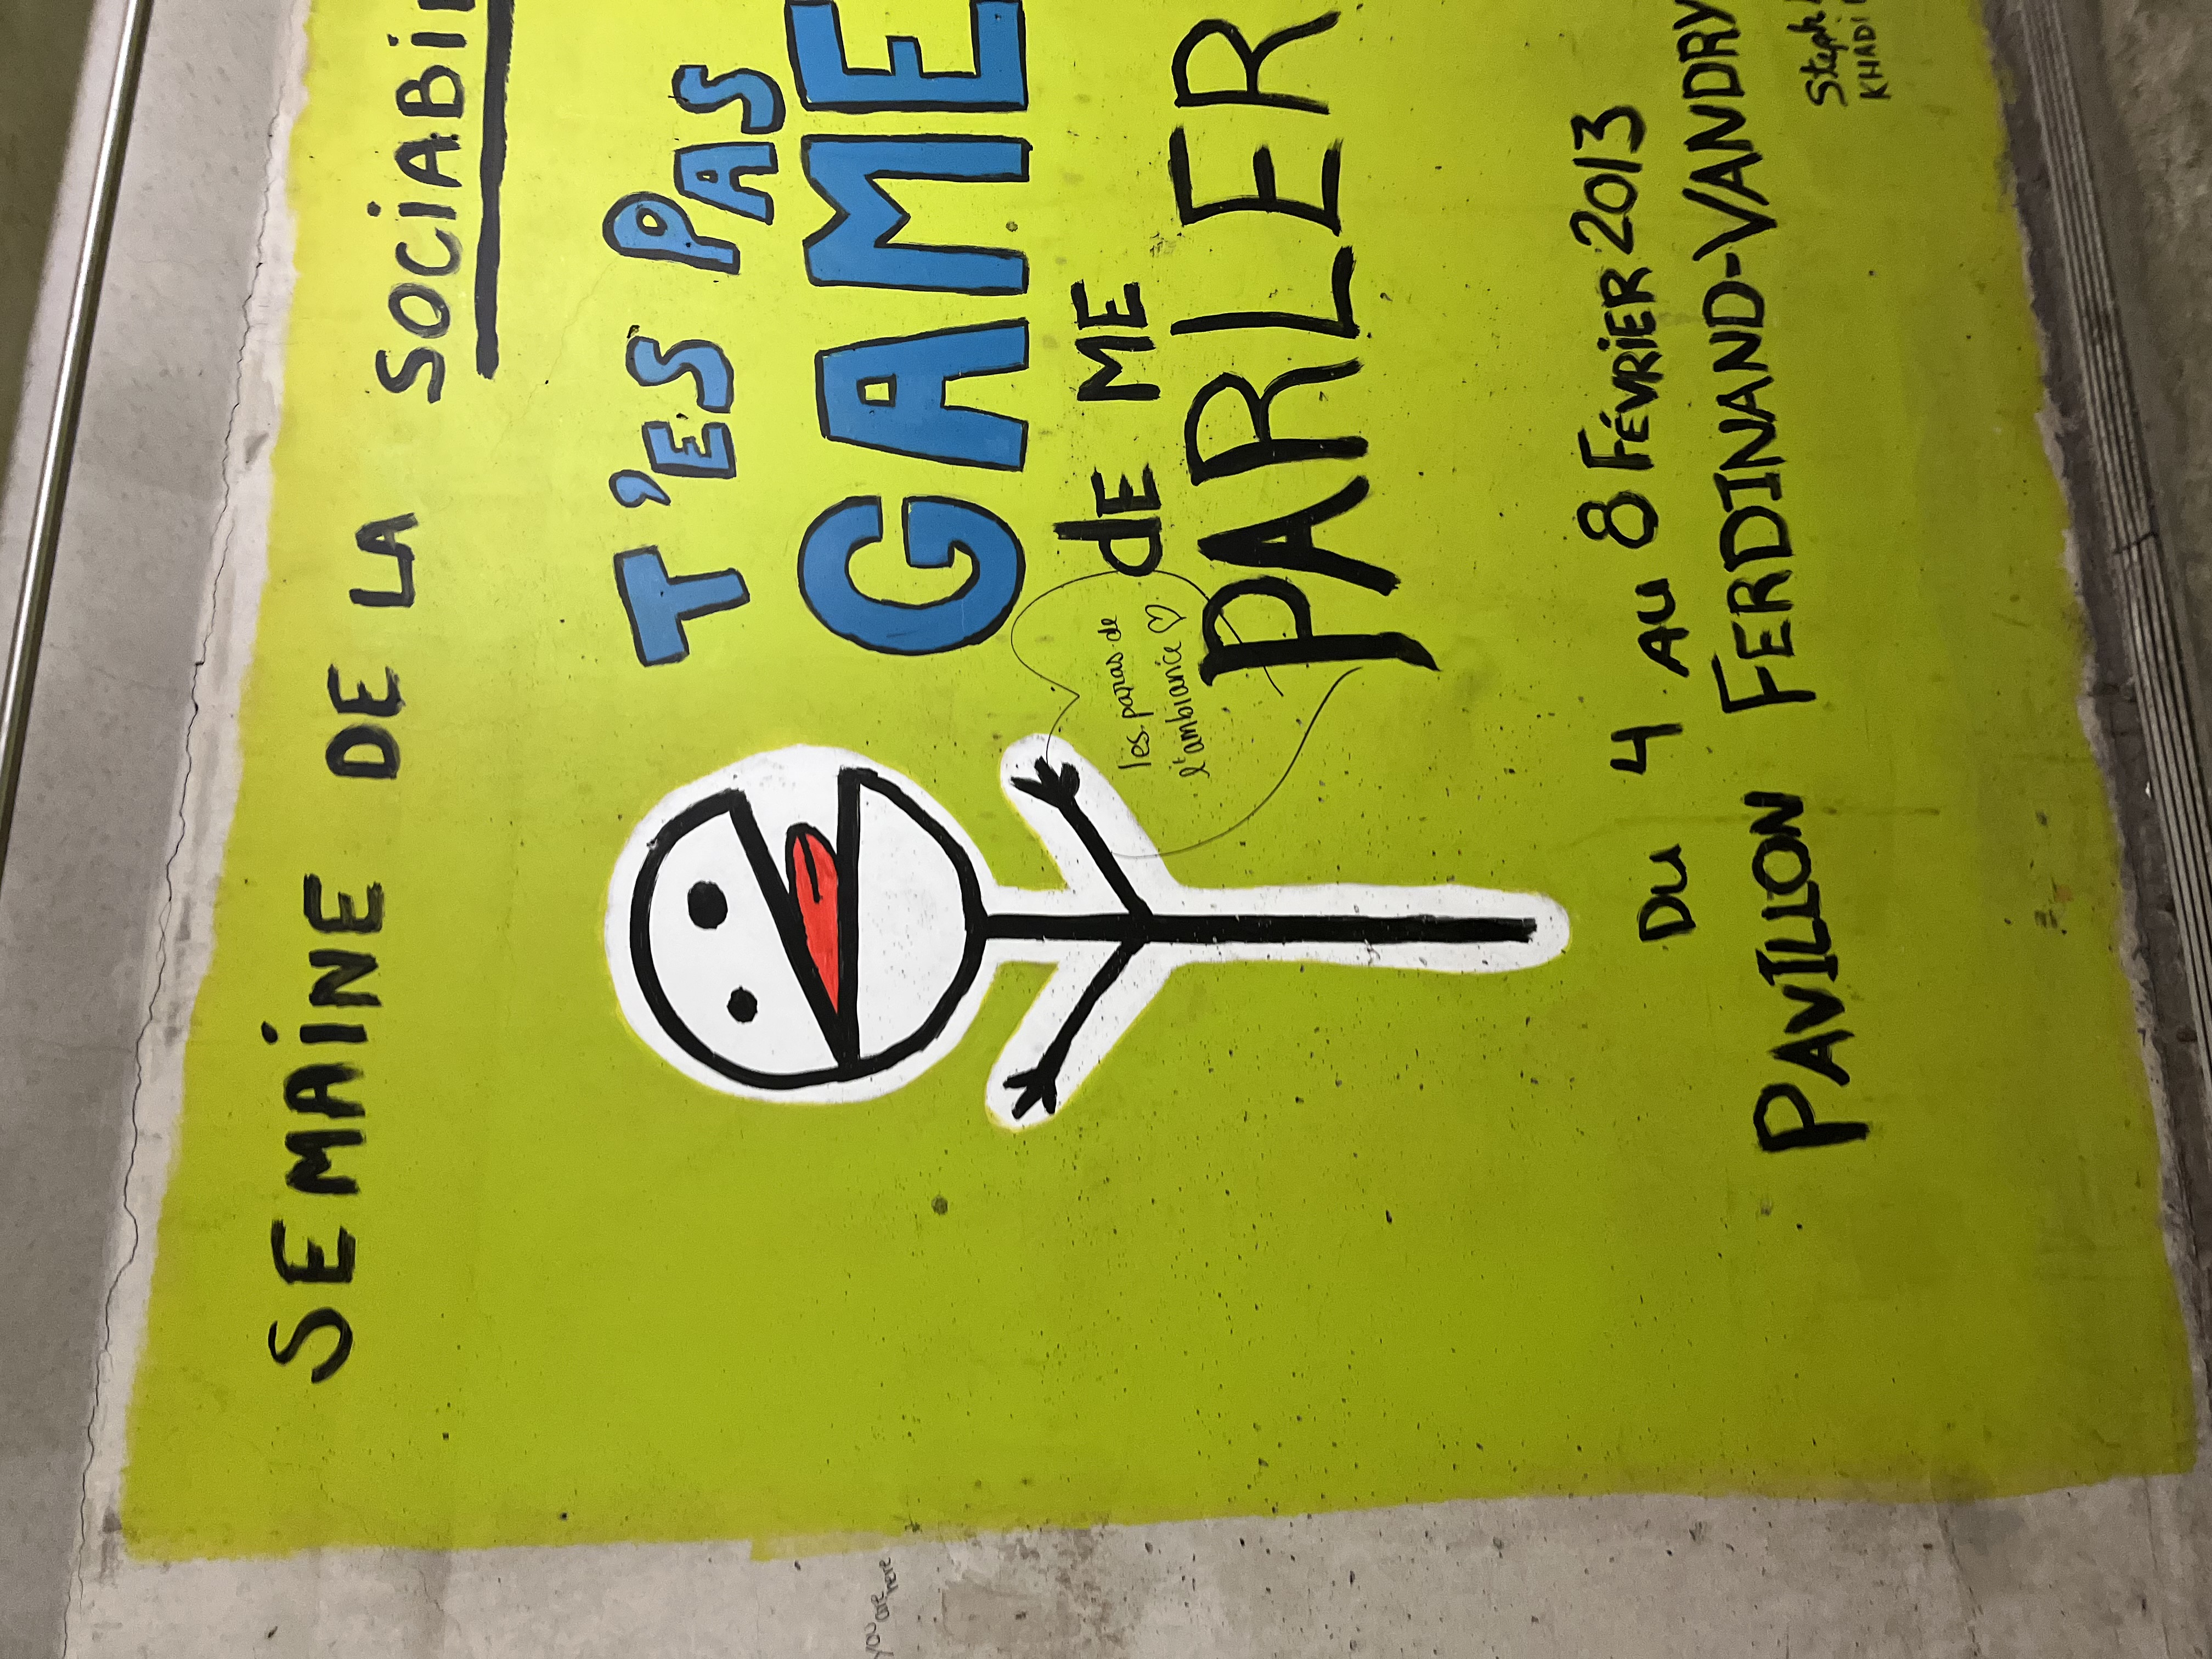 SEMAINE DE LA SOCIABIL
T'ES PAS
GAME
dE ME
PARLER
you are here
les paras de
l'ambiance ♡
DU 4 AU 8 FÉVRIER 2013
PAVILLON FERDINAND-VANDRY
Steph
KHADI